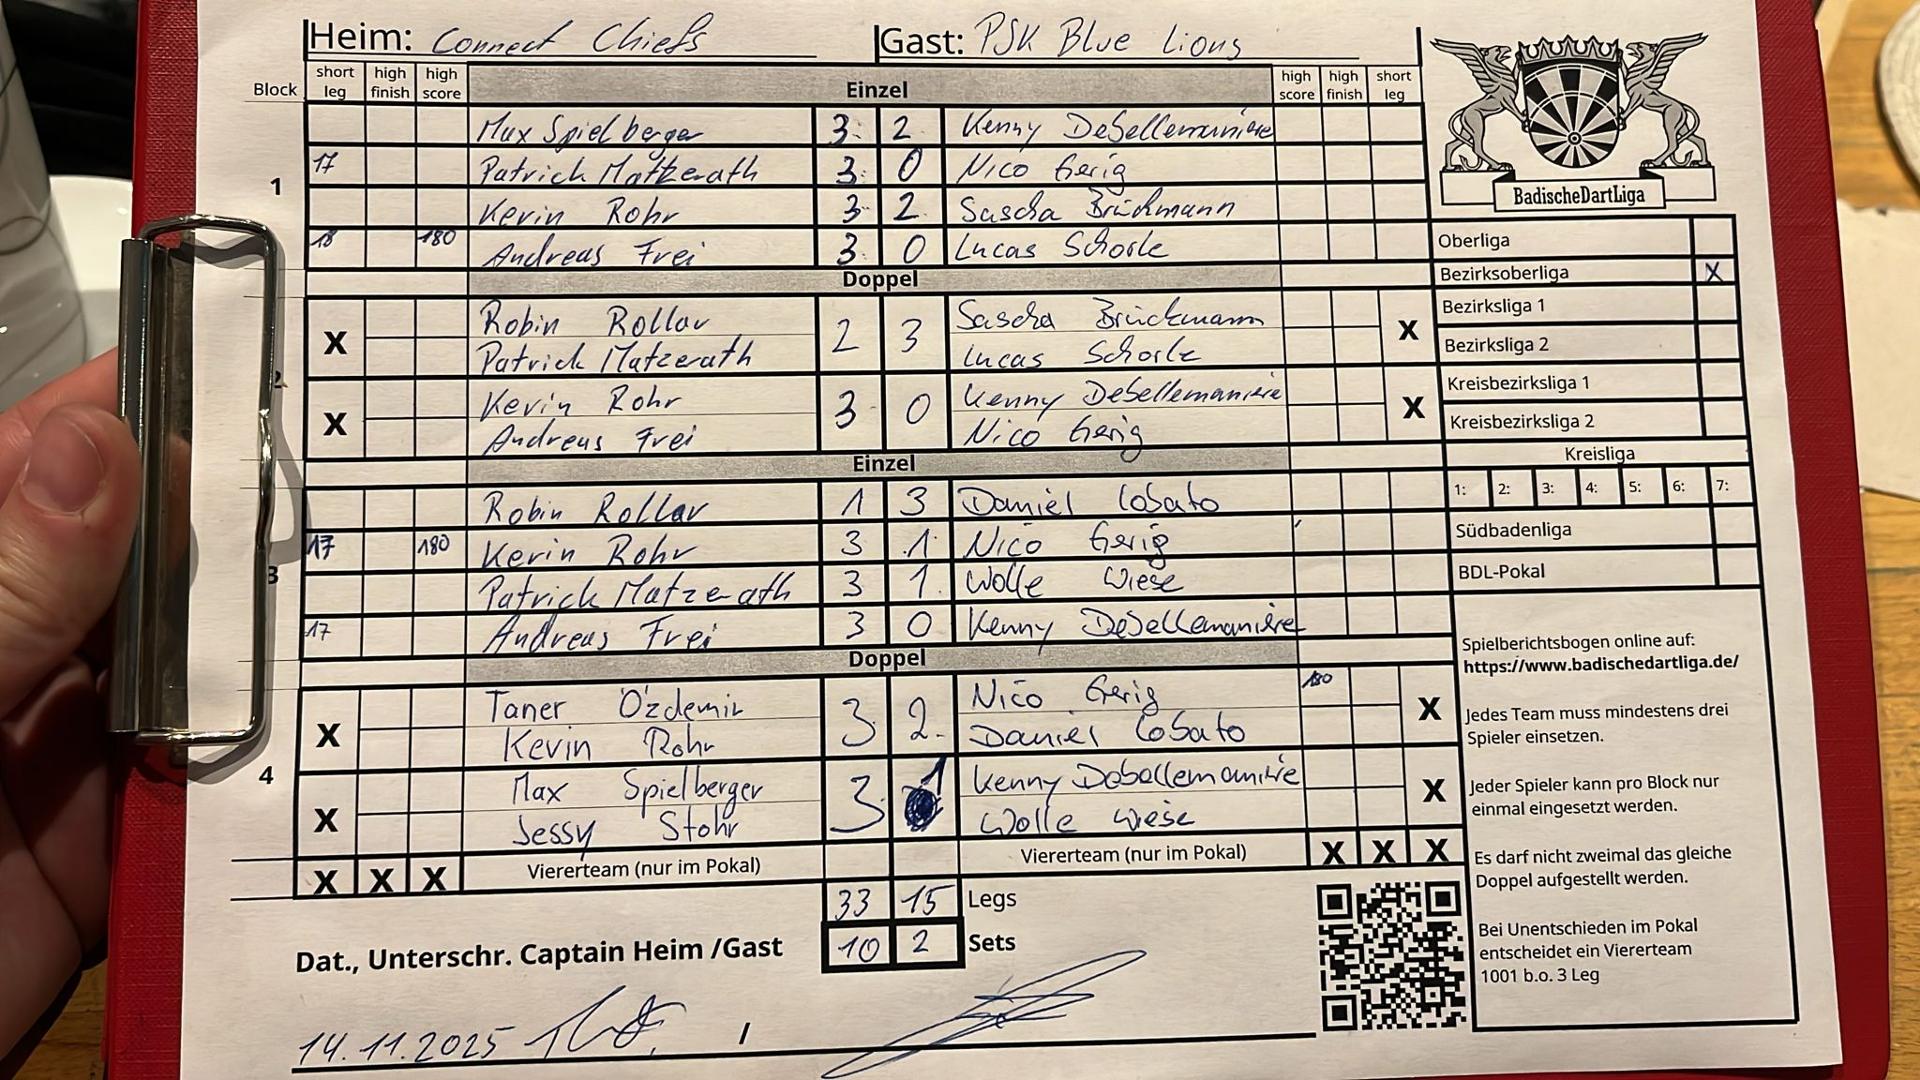 Heim: Connect Chiefs Gast: PSK Blue Lions
Block short leg high finish high score Einzel high score high finish short leg
Max Spielberger 3: 2 Kenny DeSellemanière
17 Patrick Matzerath 3: 0 Nico Gerig
1
Kevin Rohr 3: 2 Sascha Brückmann
18 180 Andreas Frei 3 0 Lucas Schorle
Doppel
X Robin Rollar 2 3 Sascha Brückmann X
Patrick Matzerath Lucas Schorle
2
X Kevin Rohr 3 0 Kenny DeSellemanière X
Andreas Frei Nico Gerig
Einzel
Robin Rollar 1 3 Daniel Lobato
17 180 Kevin Rohr 3 1 Nico Gerig
3
Patrick Matzerath 3 1 Wolle Wiese
17 Andreas Frei 3 0 Kenny DeSellemanière
Doppel
X Taner Özdemir 3 2 Nico Gerig 180 X
Kevin Rohr Daniel Lobato
4
X Max Spielberger 3 1 Kenny Desellemanière X
Jessy Stohr Wolle Wiese
X X X Viererteam (nur im Pokal) Viererteam (nur im Pokal) X X X
33 15 Legs
10 2 Sets
Dat., Unterschr. Captain Heim /Gast
14.11.2025 /
BadischeDartLiga
Oberliga
Bezirksoberliga X
Bezirksliga 1
Bezirksliga 2
Kreisbezirksliga 1
Kreisbezirksliga 2
Kreisliga
1: 2: 3: 4: 5: 6: 7:
Südbadenliga
BDL-Pokal
Spielberichtsbogen online auf:
https://www.badischedartliga.de/
Jedes Team muss mindestens drei
Spieler einsetzen.
Jeder Spieler kann pro Block nur
einmal eingesetzt werden.
Es darf nicht zweimal das gleiche
Doppel aufgestellt werden.
Bei Unentschieden im Pokal
entscheidet ein Viererteam
1001 b.o. 3 Leg